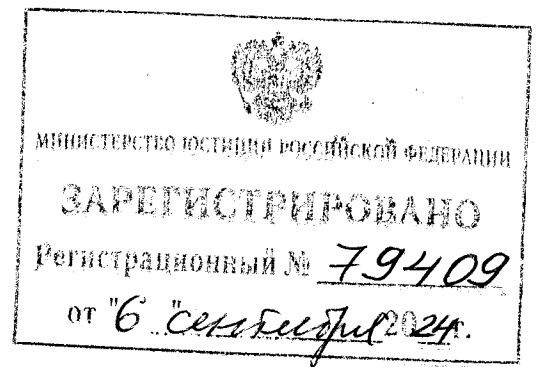 МИНИСТЕРСТВО ЮСТИЦИИ РОССИЙСКОЙ ФЕДЕРАЦИИ
ЗАРЕГИСТРИРОВАНО
Регистрационный № 79409
от "6" сентября 2024г.